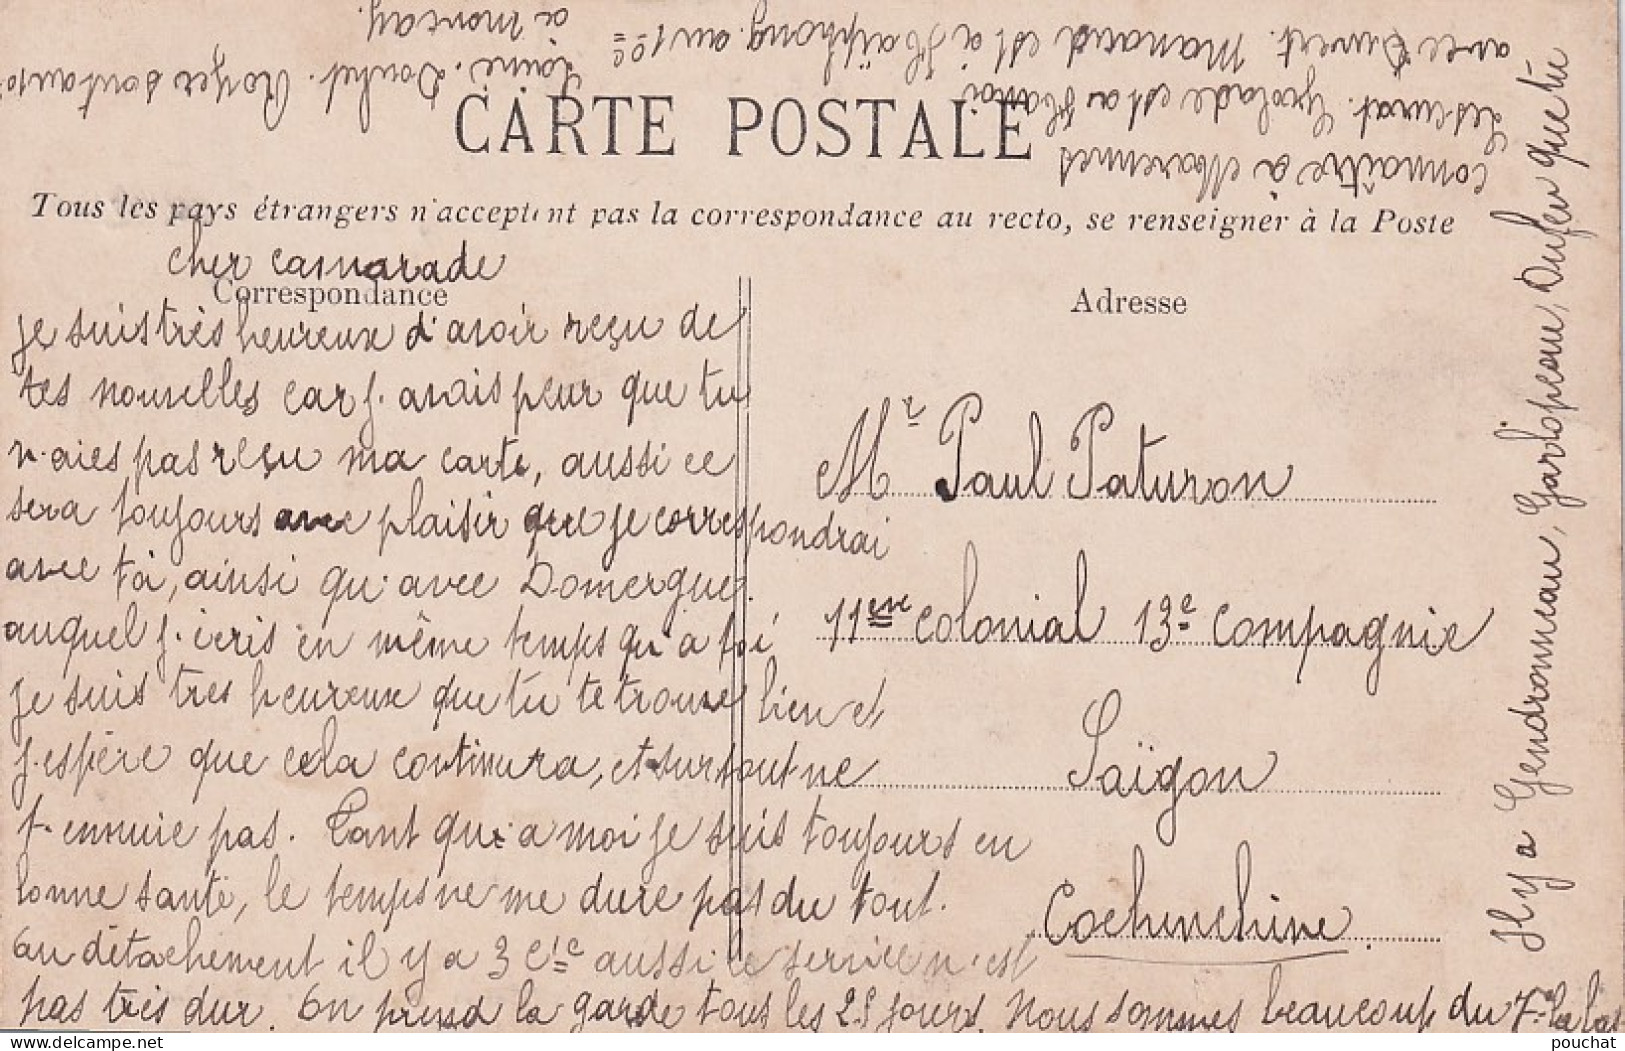 CARTE POSTALE
Tous les pays étrangers n'acceptent pas la correspondance au recto, se renseigner à la Poste
Correspondance
Adresse
cher camarade
je suis très heureux d'avoir reçu de
tes nouvelles car j. avais peur que tu
n. aies pas reçu ma carte, aussi ce
sera toujours avec plaisir que je correspondrai
avec toi, ainsi qu'avec Domergue.
auquel j. ecris en même temps qu'a toi
je suis tres heureux que tu te trouve bien et
j. espère que cela continura, et surtout ne
t. ennuie pas. Tant qu'a moi je suis toujours en
bonne santé, le temps ne me dure pas du tout.
au détachement il y a 3 Cie aussi le service n. est
pas très dur. On prend la garde tous les 25 jours. Nous sommes beaucoup du 7e
Il y a Gendronneau, Gardopeau, Dufeu que tu
connaître à Marennes
est a Hanoï
avec Duvert. Manaud est à Haïphong. au 10e
Doulet. Royer sont au 10e
à moncay.
Mr Paul Paturon
11ème colonial 13e compagnie
Saïgon
Cochinchine.
https://www.delcampe.net
pouchat